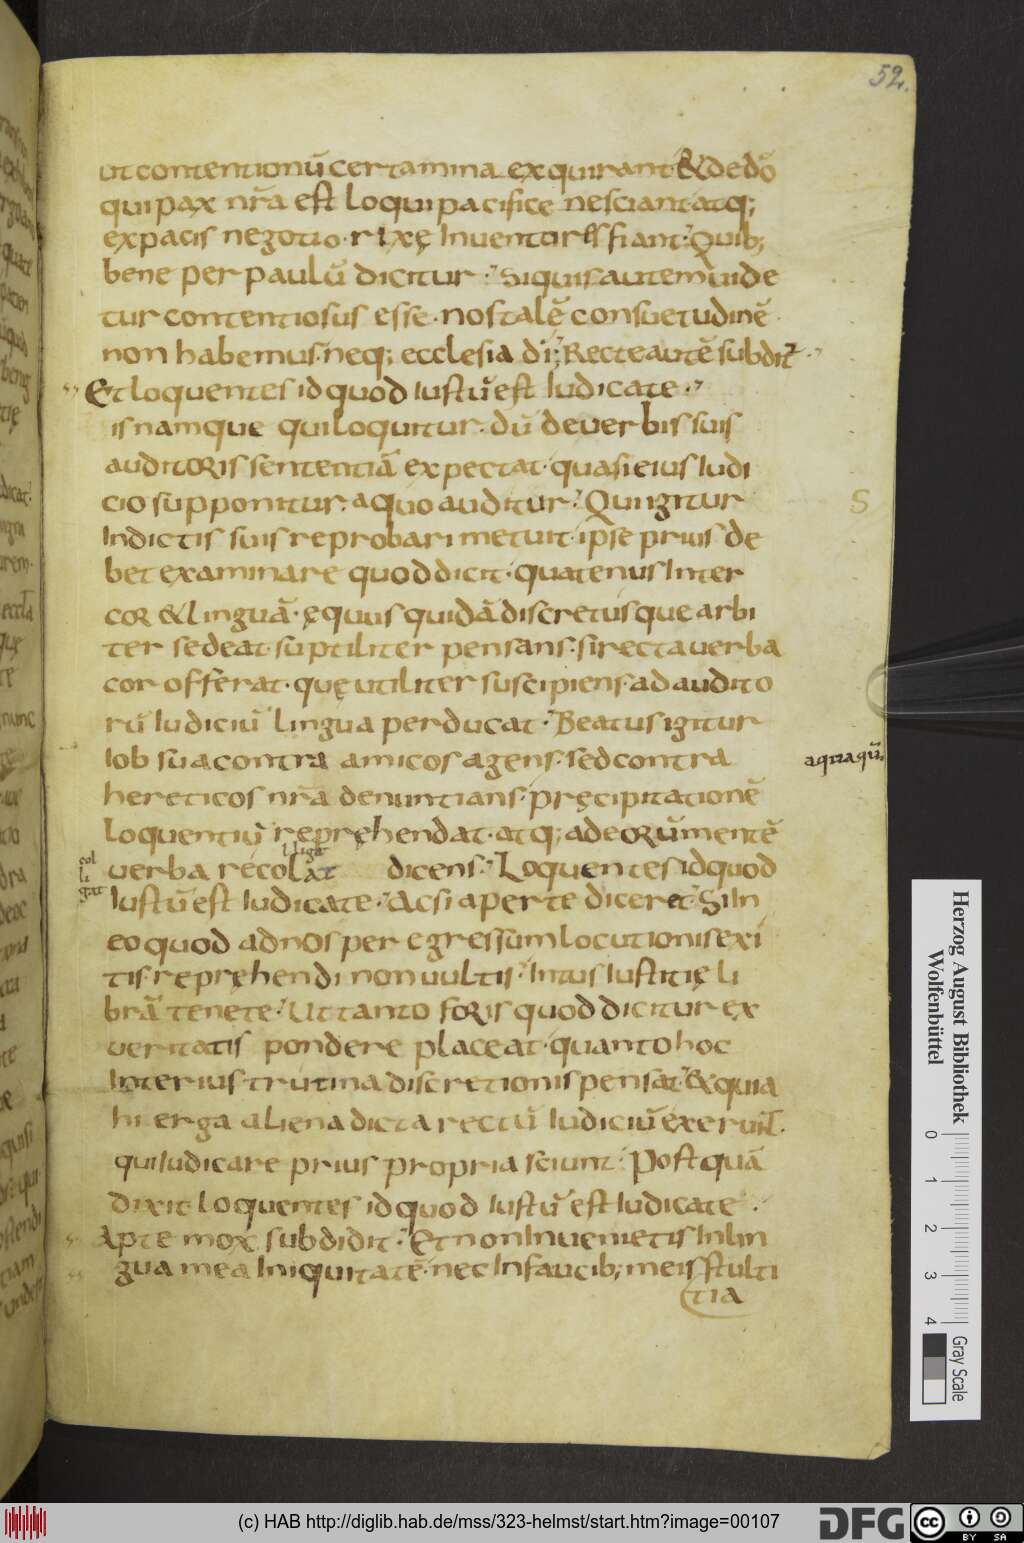 52.
ut contentionū certamina exquirant·& de dō
qui pax nr̄a est loqui pacifice nesciant atq;
ex pacis negotio· rixę Inuentores fiant· Quib;
bene per paulū dicitur· Siquis autem uide
tur contentiosus esse· nos talē consuetudinē
non habemus· neq; ecclesia dī; Recte autē subdit
Et loquentes id quod Iustū est Iudicate·
is namque qui loquitur· dū de uerbis suis
auditoris sententiā expectat· quasi eius Iudi
cio supponitur· a quo auditur· Qui igitur
In dictis suis reprobari metuit· ipse prius de
bet examinare quod dicit· quatenus Inter
cor & linguā· ęquus quidā discretusque arbi
ter sedeat· suptiliter pensans· si recta uerba
cor offerat· quę utiliter suscipiens· ad audito
rū Iudiciū lingua perducat· Beatus igitur
Iob sua contra amicos agens· sed contra
aq̄naqū
hereticos nr̄a denuntians· pręcipitationē
loquentiū repręhendat· atq; ad eorū mentē
uerba recolat dicens· Loquentes id quod
lligat
col
li
gat
Iustū est Iudicate· Ac si aperte diceret· Si In
eo quod ad nos per egressum locutionis exi
tis· repręhendi non uultis· Intus Iustitię li
brā tenete· Ut tanto foris quod dicitur ex
ueritatis pondere placeat· quanto hoc
Interius trutina discretionis pensat· & quia
hi erga aliena dicta rectū Iudiciū exerunt·
qui Iudicare prius propria sciunt· Postquā
dixit loquentes id quod Iustū est Iudicate·
Apte mox subdidit· Et non Inuenietis In lin
gua mea Iniquitatē· nec In faucib; meis stulti
tia
S
Herzog August Bibliothek
Wolfenbüttel
0 1 2 3 4
Gray Scale
(c) HAB http://diglib.hab.de/mss/323-helmst/start.htm?image=00107
DFG
cc BY SA